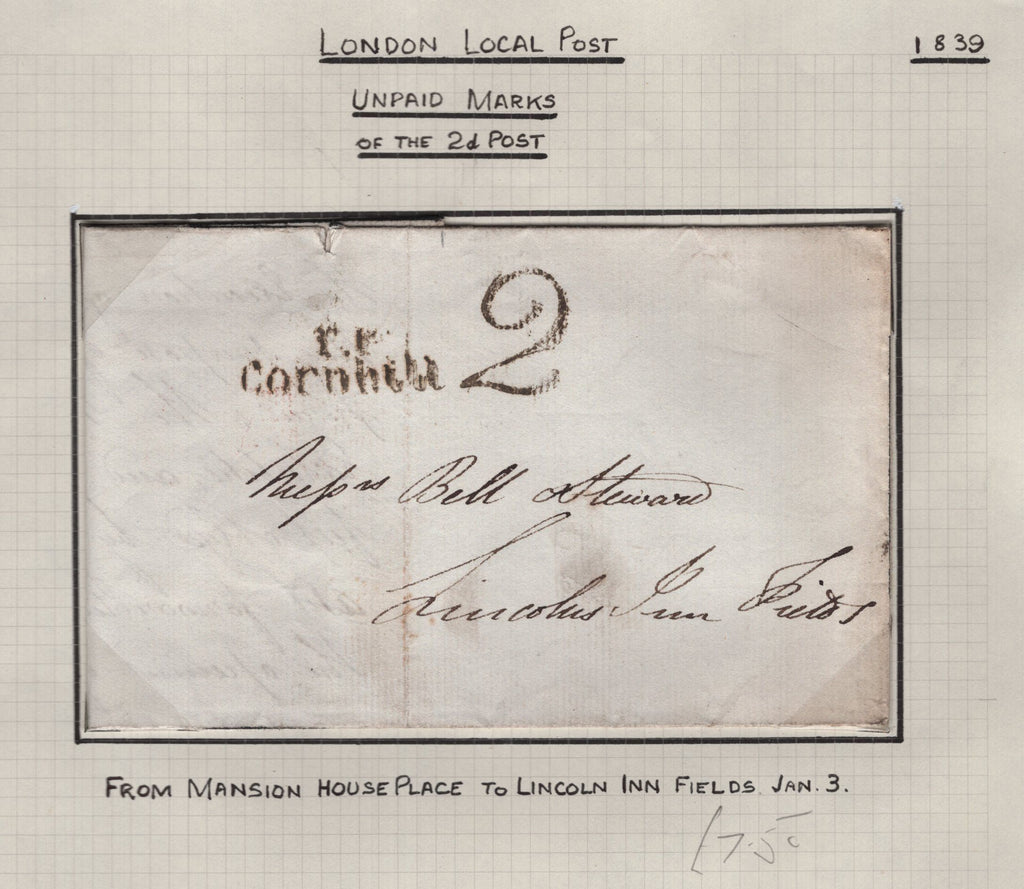 LONDON LOCAL POST
1839
UNPAID MARKS
OF THE 2d POST
r.r
cornhill
2
Messrs Bell & Steward
Lincolns Inn Fields
FROM MANSION HOUSE PLACE TO LINCOLN INN FIELDS JAN. 3.